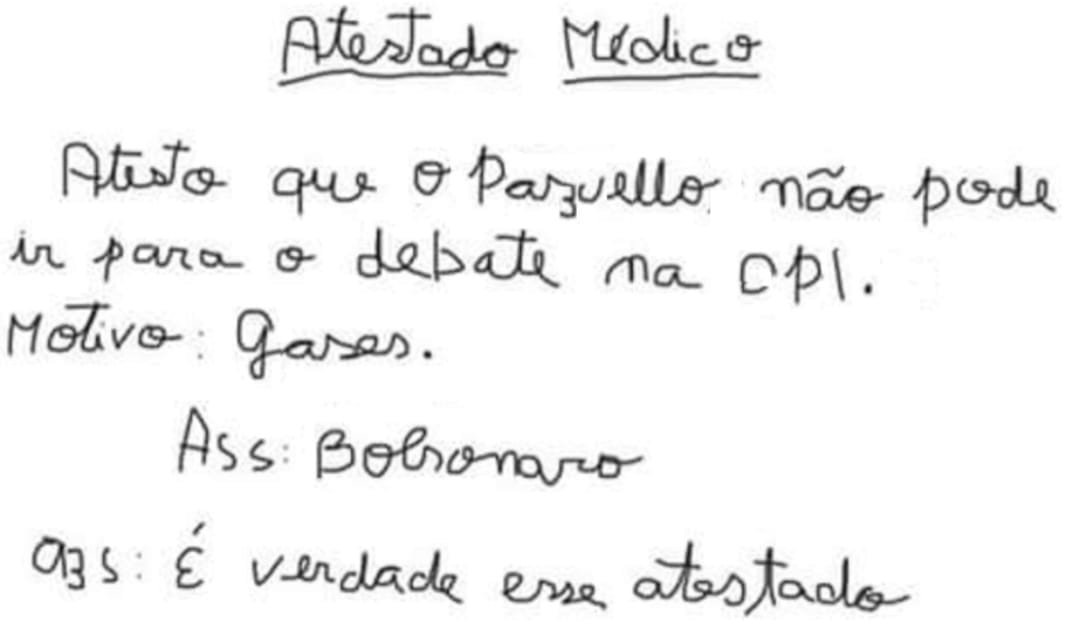 Atestado Médico
Atesto que o Pazuello não pode
ir para o debate na CPI.
Motivo: Gases.
Ass: Bolsonaro
OBS: É verdade esse atestado